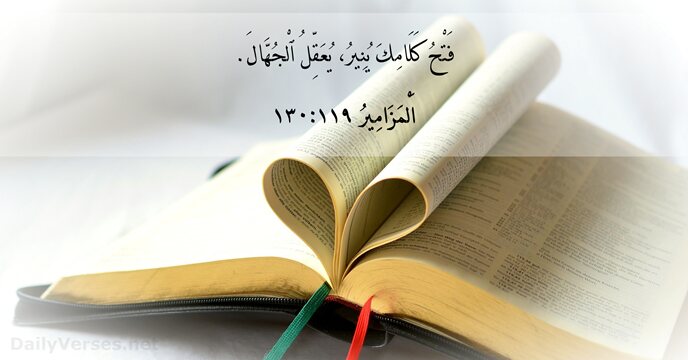 فَتْحُ كَلَامِكَ يُنِيرُ، يُعَقِّلُ ٱلْجُهَّالَ.
ٱلْمَزَامِيرُ ١١٩:١٣٠
DailyVerses.net